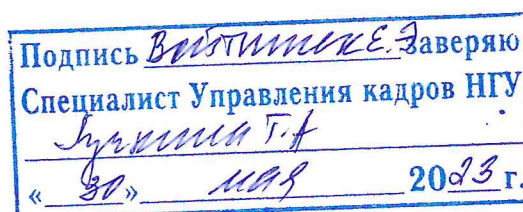 Подпись Войтишек Е.Э. заверяю
Специалист Управления кадров НГУ
Т.А
«30» мая 2023 г.